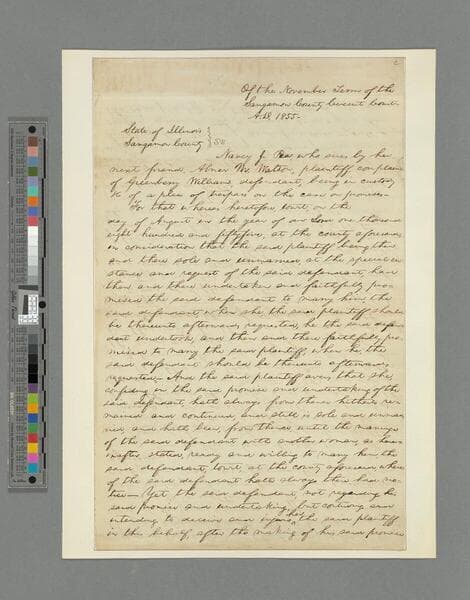 Of the November Term of the
Sangamon County Circuit Court
A.D. 1855-
State of Illinois
Sangamon County } SS
Nancy J. who sues by her
next friend, Abner M. Watson, plaintiff complains
of Greenberry Williams, defendant, being in custody
&c of a plea of trespass on the case on promises:
For that whereas heretofore, towit, on the
day of August in the year of our Lord one thousand
eight hundred and fifty five, at the county aforesaid,
in consideration that the said plaintiff being then
and there sole and unmarried, at the special in-
stance and request of the said defendant, had
then and there undertaken and faithfully pro-
mised the said defendant to marry him, the
said defendant, when she, the said plaintiff should
be thereunto afterwards requested, he the said defen-
dant undertook, and then and there faithfully pro-
mised to marry the said plaintiff, when he, the
said defendant should be thereunto afterwards
requested— And the said plaintiff avers that she
confiding in the said promise and undertaking of the
said defendant hath always from thence hitherto re-
mained and continued, and still is sole and unmar-
ried and hath been, from thence until the marriage
of the said defendant with another woman, as herein-
after stated, ready and willing to marry him, the
said defendant, towit at the county aforesaid, where-
of the said defendant hath always there had no-
tice— Yet the said defendant, not regarding his
said promise and undertaking, but contriving and
intending to deceive and injure her, the said plaintiff
in this behalf, after the making of his said promise